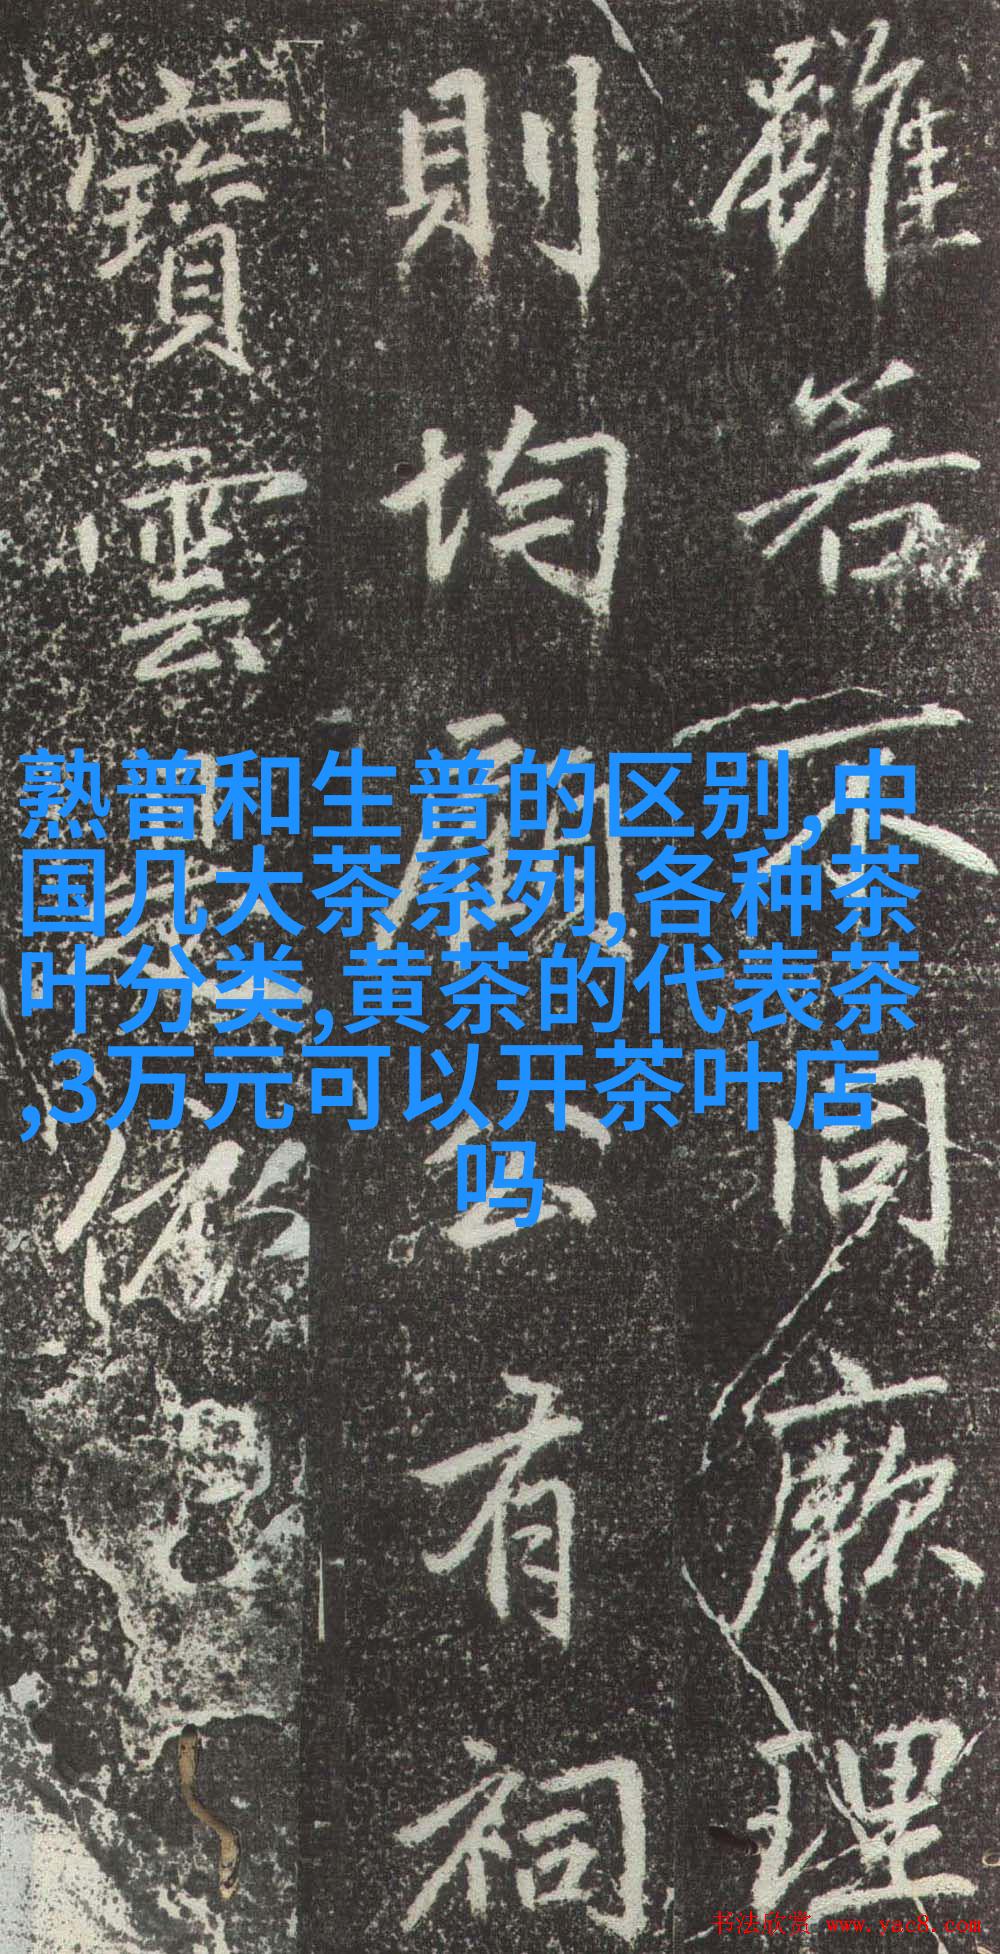 雖若不同厥理
則均廟公有祠
寶雲
熟普和生普的区别,中
国几大茶系列,各种茶
叶分类,黄茶的代表茶
,3万元可以开茶叶店
吗
书法欣赏 www.yac8.com